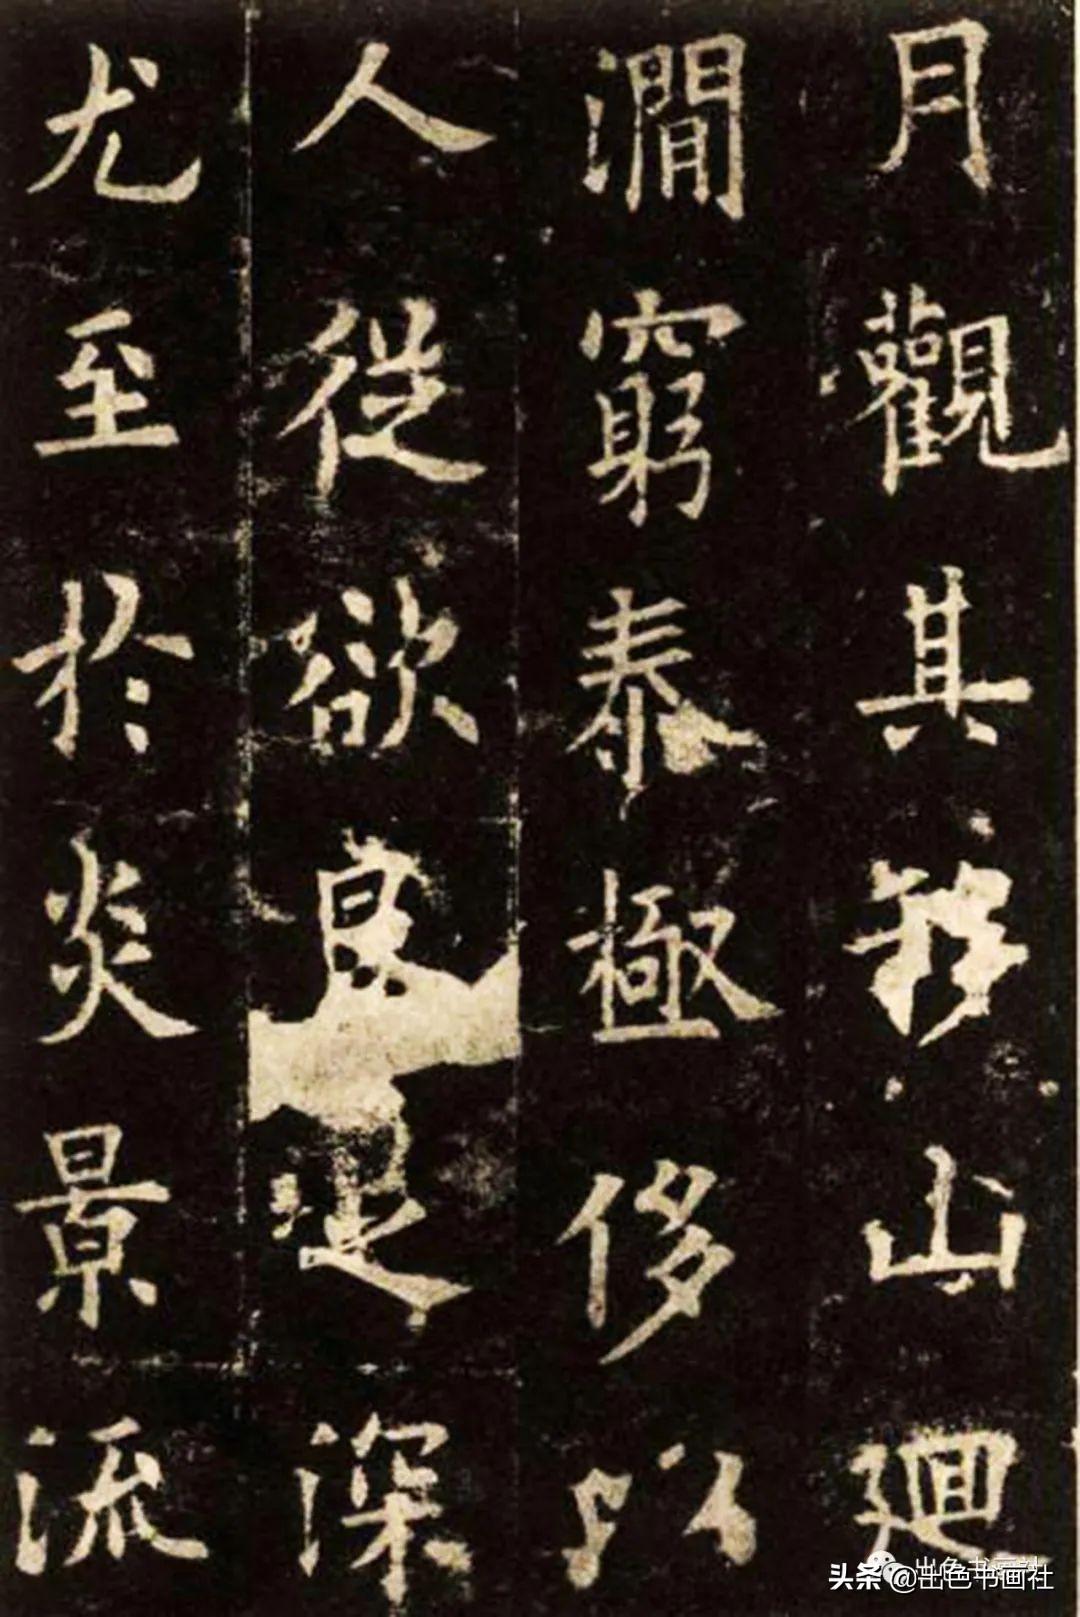 月觀其移山廻
澗窮泰極侈以
人從欲良足深
尤至於炎景流
出色书画社
头条@出色书画社